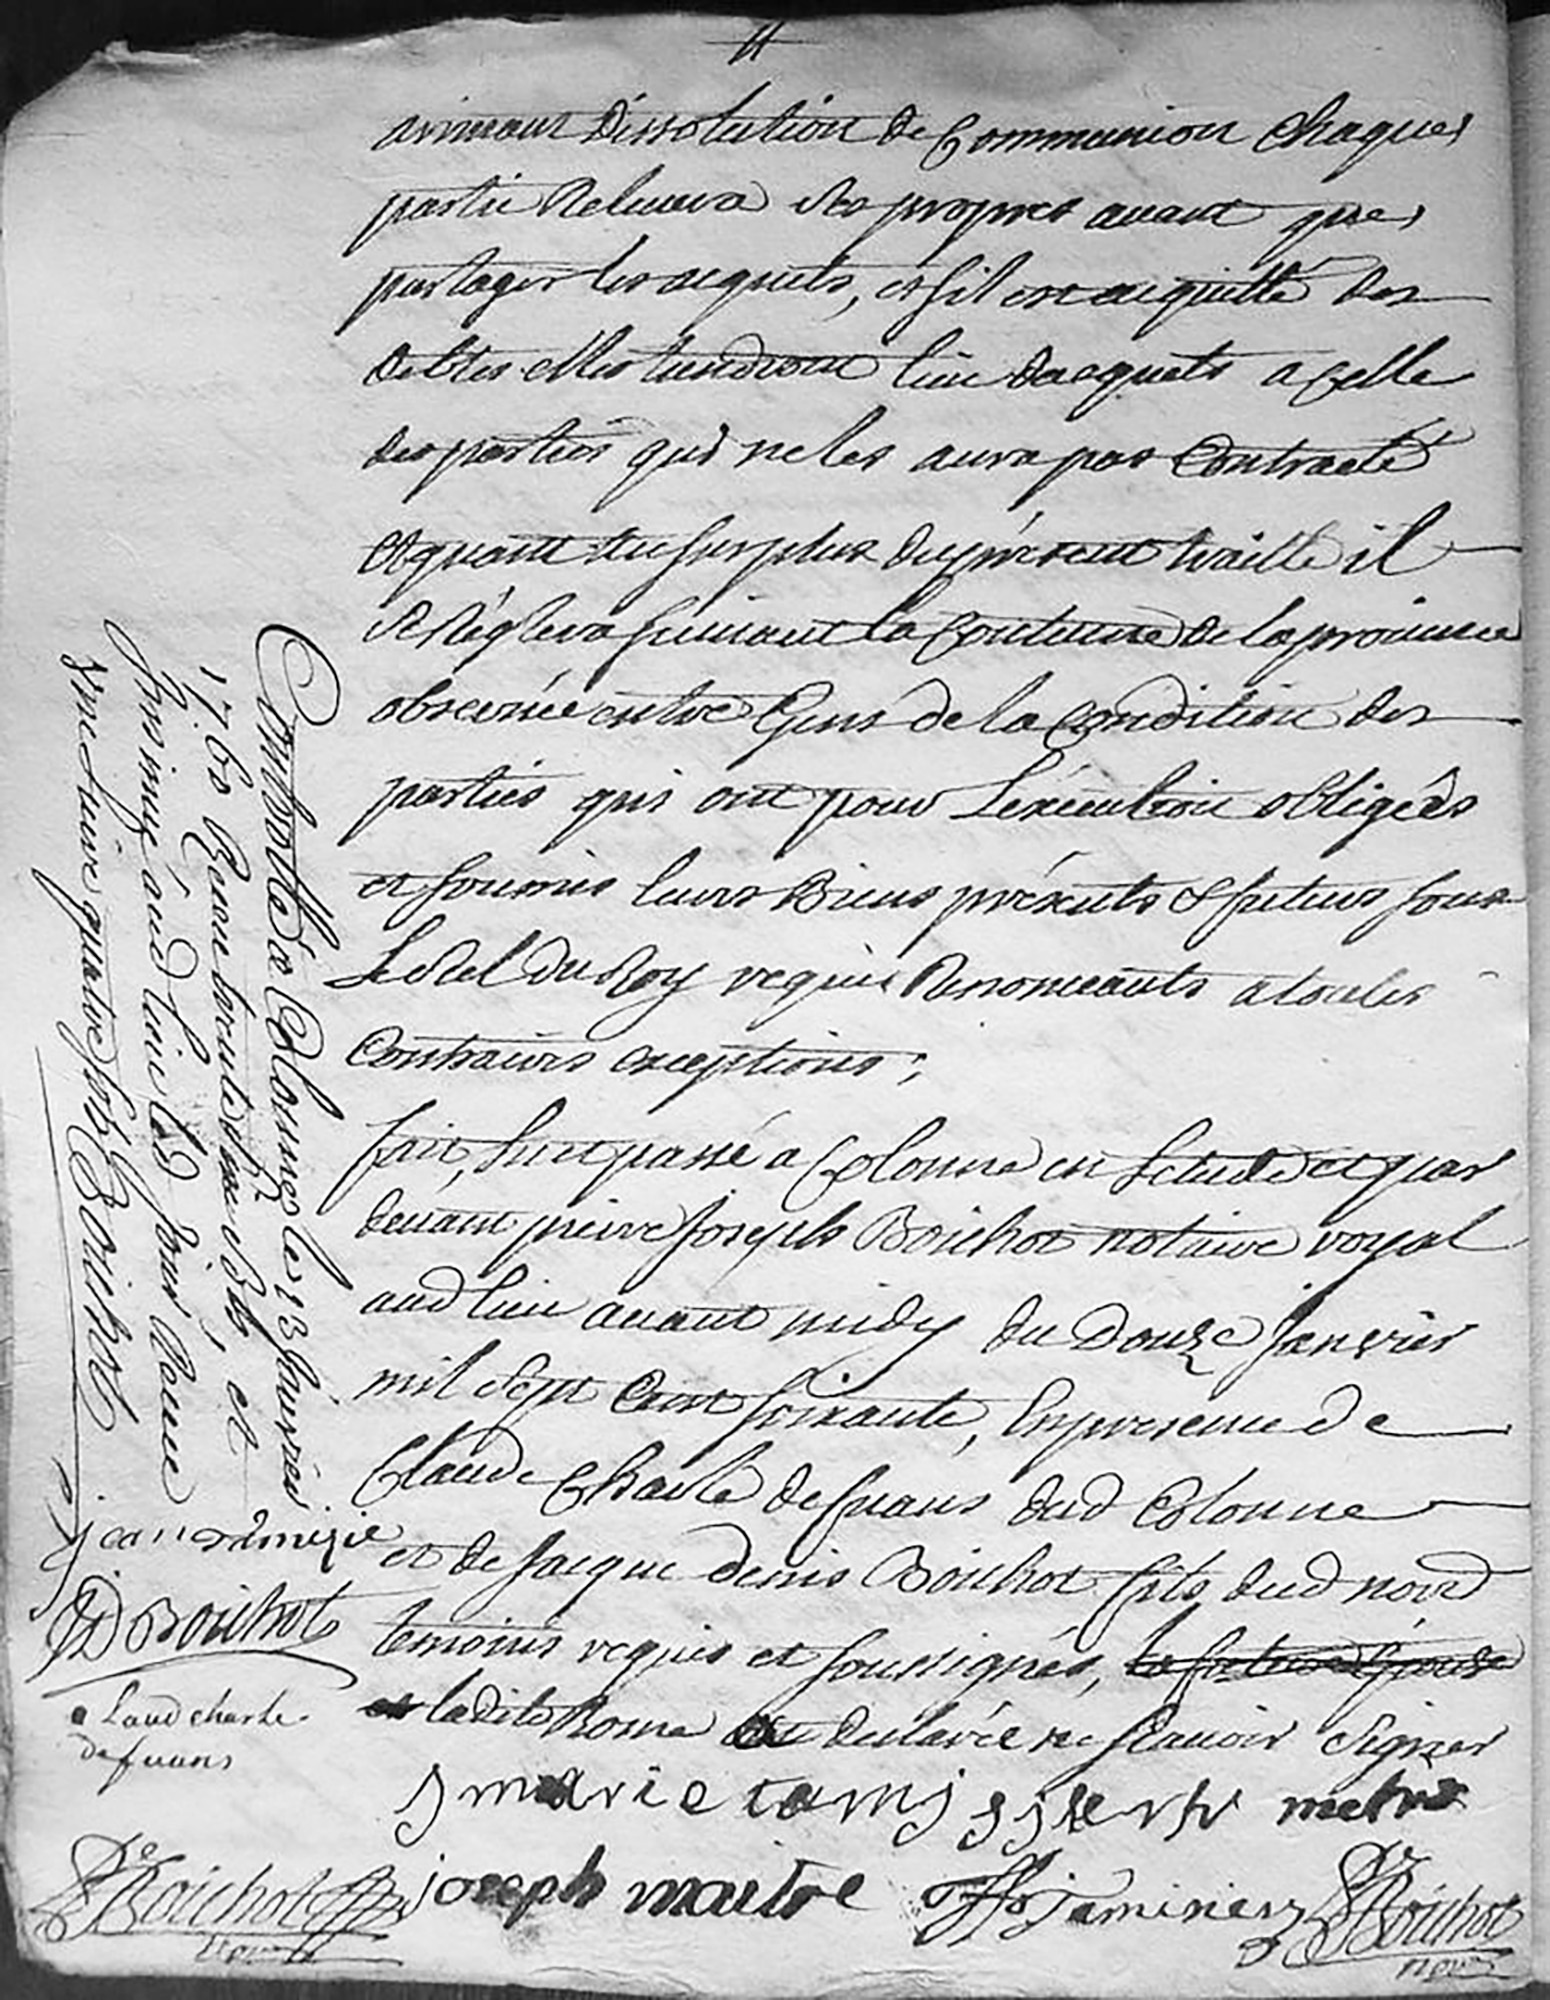 arrivant dissolution de Communion chaque
partie relevera ses propres avant que
partager les acquets, et s'il est acquitté des
debtes elles tiendront lieu dacquets a celle
des parties qui ne les aura pas contracté
et quant au surplus du présent traitté il
se réglera suivant la coutume de la province
observée entre Gens de la condition des
parties qui ont pour Lexécution obligées
et soumis leurs Biens présents & futurs sous
Le scel du Roy requis Renonceants a toutes
contraires exceptions;
fait, lu et passé a Colonne en Letude et par
devant pierre Joseph Boichot notaire royal
aud lieu avant midy du Douze janvier
mil sept cent soixante, En presence de
Claude Charle defuans dud Colonne
et de Jacque denis Boichot fils dud nore
temoins requis et soussignés, la future Epouse
et ladite Rome ont declaré ne scavoir signer
j marie metre
joseph maitre jaminiers Boichot
nore
Controllé a Colonne le 13 Janvier
1760 Receu trente deux sols, et
Insinué aud lieu led jour Receu
vingt quatre sols Boichot
jean
JD Boichot
claud charle
defuans
Boichot
nore